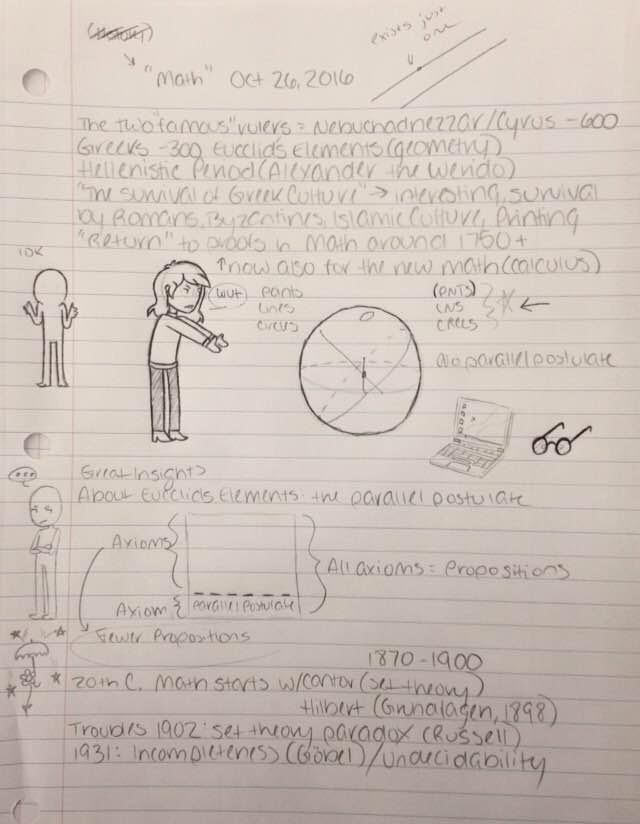 exists just
one
"Math" Oct 26, 2016
The two "famous" rulers = Nebuchadnezzar/Cyrus -600
Greeks -300 Eucclids Elements (geometry)
Hellenistic Period (Alexander the Weirdo)
"The survival of Greek Culture" → interesting, survival
by Romans, Byzantines, Islamic Culture, Printing
"Return" to proofs in Math around 1750+
↑ now also for the new math (calculus)
IDK
WUT
points
lines
circles
(PNTS)
LNS
CRCLS
no parallel postulate
...
Great Insights
About Eucclids Elements: the parallel postulate
Axioms
All axioms = Propositions
Axiom
Parallel Postulate
Fewer Propositions
1870-1900
20th C. Math starts w/Cantor (set theory)
Hilbert (Grundlagen, 1898)
Troubles 1902: set theory paradox (Russell)
1931: Incompleteness (Göbel)/Undecidability